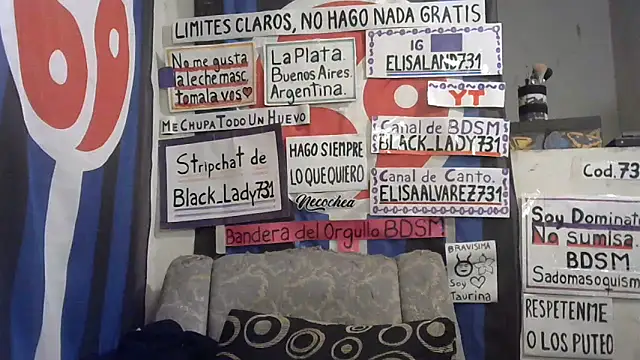 LIMITES CLAROS, NO HAGO NADA GRATIS
No me gusta
la leche masc.
tomala vos
La Plata.
Buenos Aires.
Argentina.
IG
ELISALAND731
YT
ME CHUPA TODO UN HUEVO
Stripchat de
Black_Lady731
HAGO SIEMPRE
LO QUE QUIERO
Necochea
Canal de BDSM
BLACK_LADY731
Canal de Canto.
ELISAALVAREZ731
Bandera del Orgullo BDSM
BRAVISIMA
Soy
Taurina
Cod. 73
Soy Dominat
No Sumisa
BDSM
Sadomasoquism
RESPETENME
O LOS PUTEO